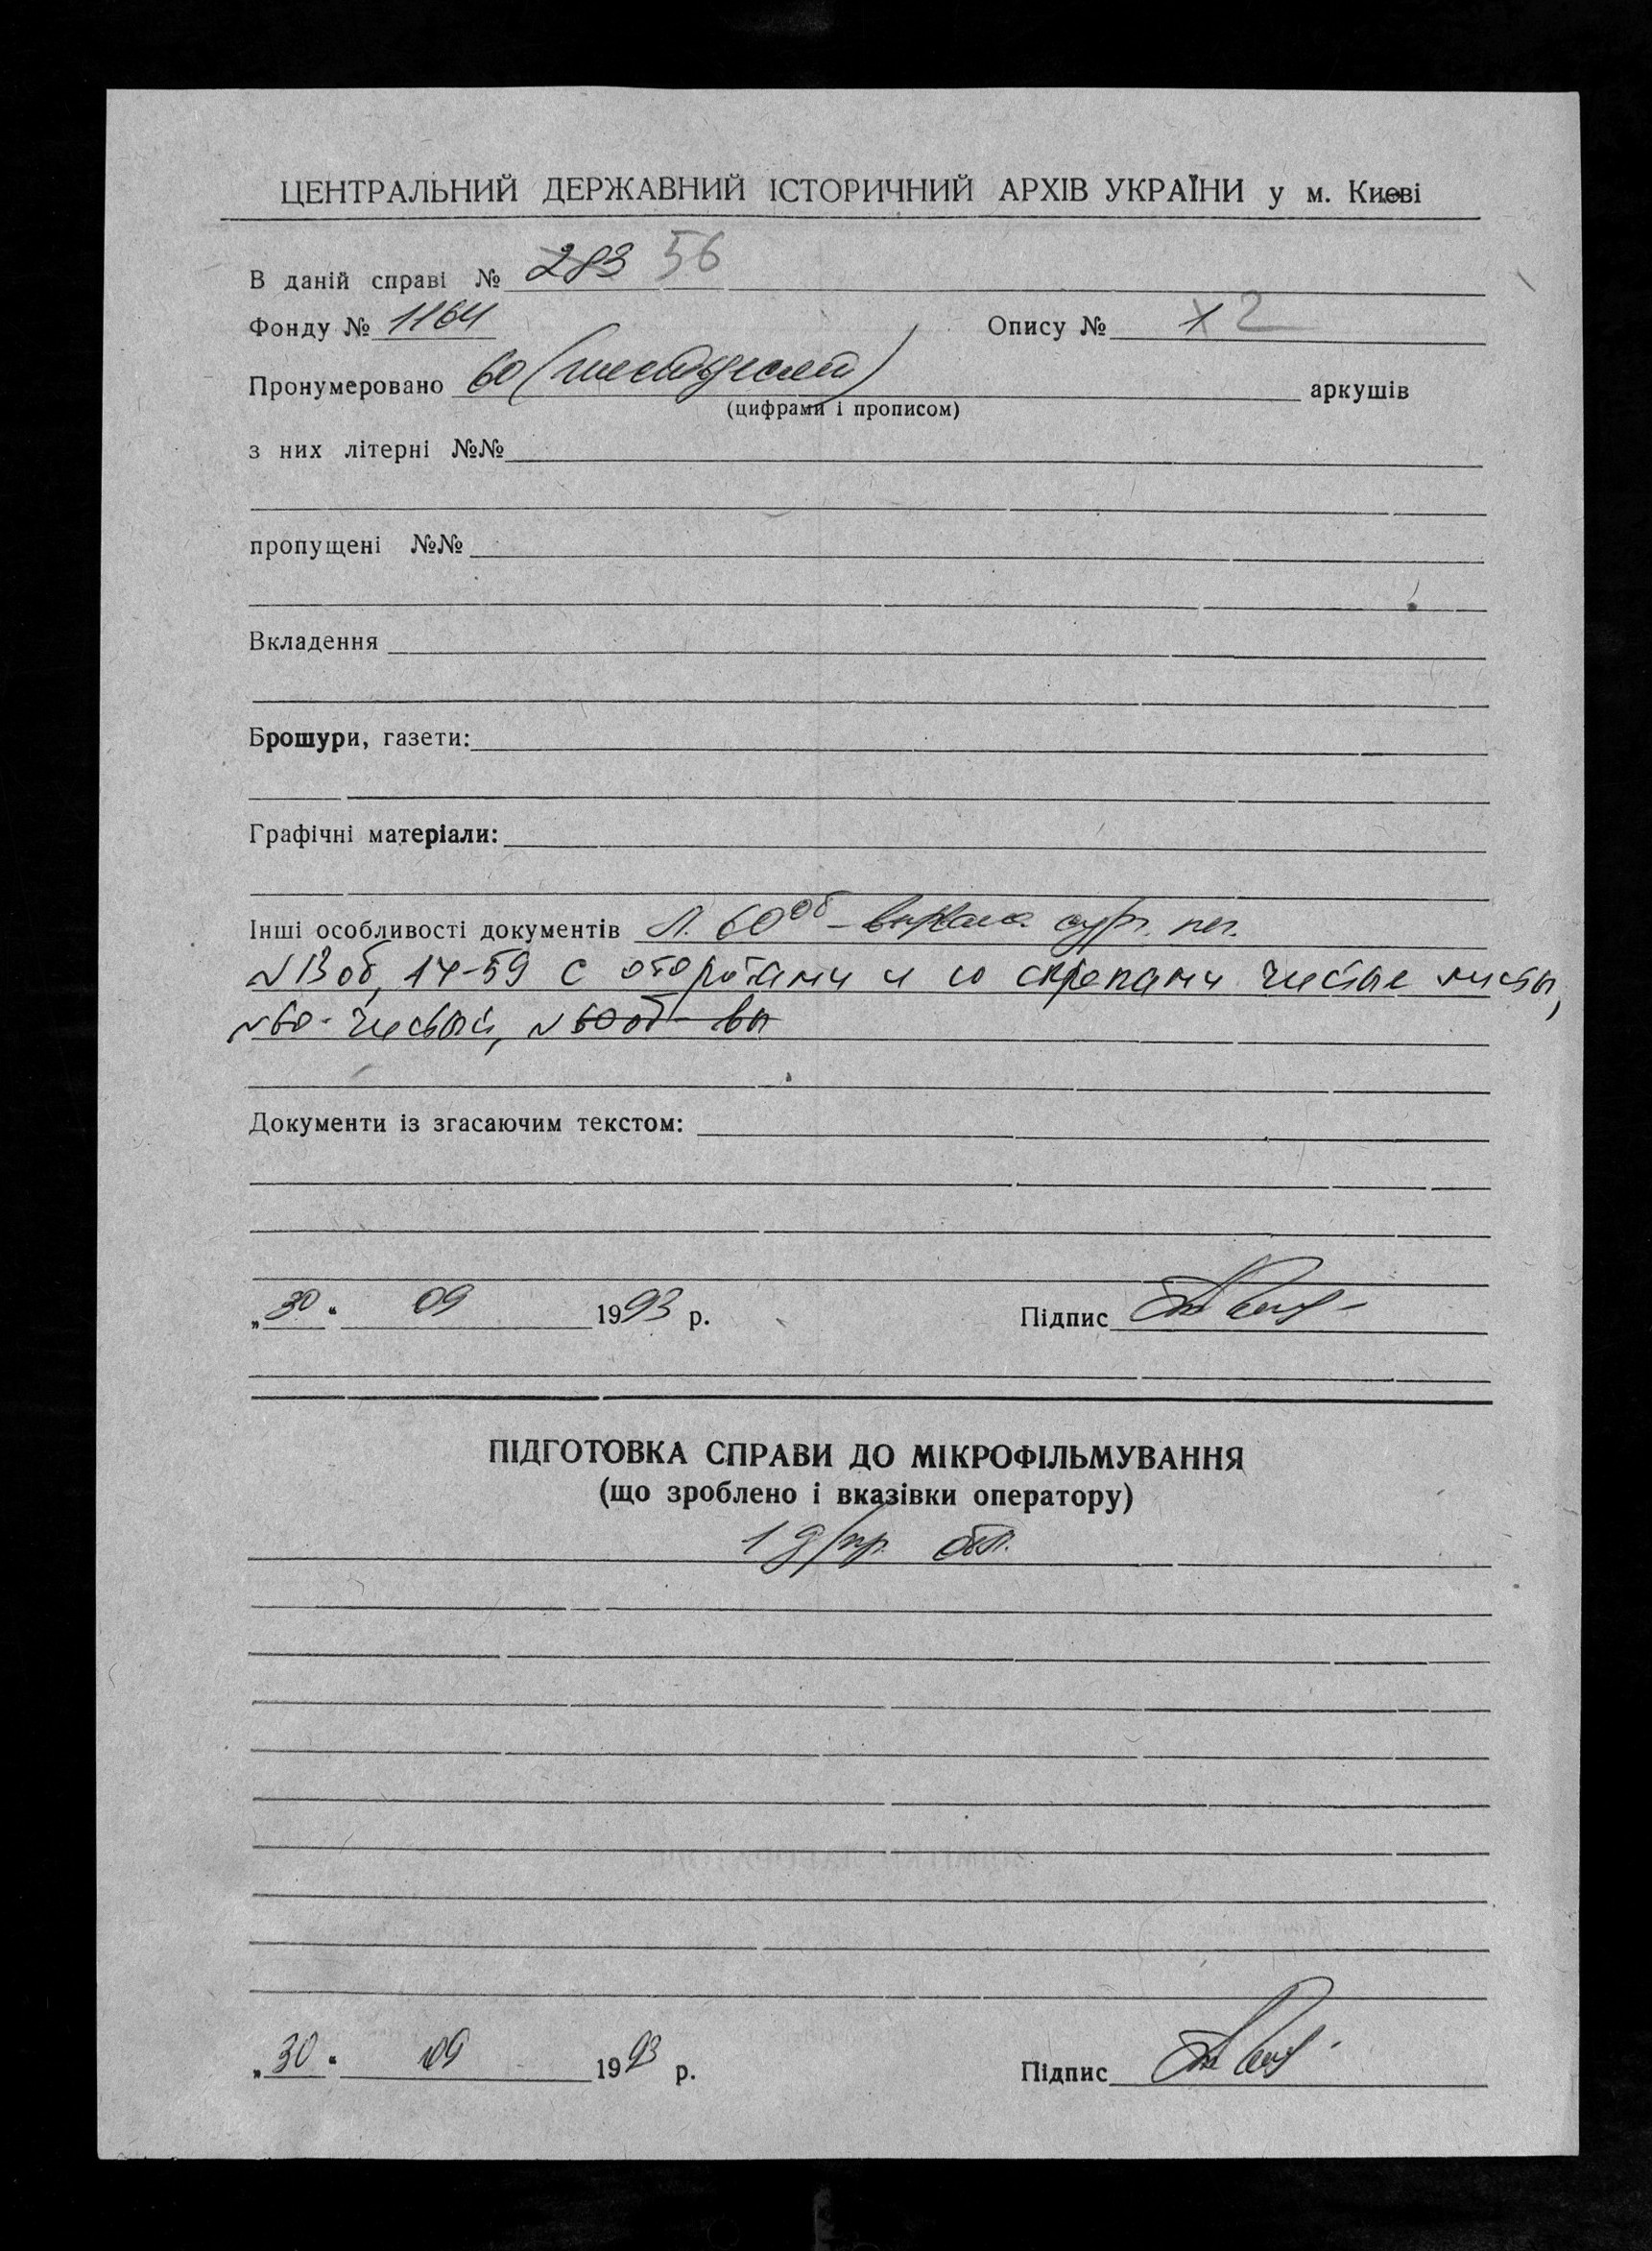 ЦЕНТРАЛЬНИЙ ДЕРЖАВНИЙ ІСТОРИЧНИЙ АРХІВ УКРАЇНИ у м. Києві
В даній справі № 283 56
Фонду № 1164 Опису № 1 2
Пронумеровано 60 (шестьдесят) аркушів
(цифрами і прописом)
з них літерні №№
пропущені №№
Вкладення
Брошури, газети:
Графічні матеріали:
Інші особливості документів Л. 60 об - сург. печ.
13 об, 14-59 с оборотами и со скрепами чистые листы,
60 - чистый, 60 об - вы
Документи із згасаючим текстом:
„30“ 09 1993 р. Підпис
ПІДГОТОВКА СПРАВИ ДО МІКРОФІЛЬМУВАННЯ
(що зроблено і вказівки оператору)
1
„30“ 09 1993 р. Підпис